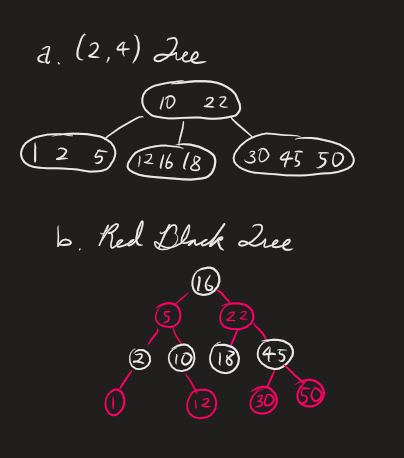 a. (2,4) Tree
10 22
1 2 5 12 16 18 30 45 50
b. Red Black Tree
16
5 22
2 10 18 45
1 12 30 50